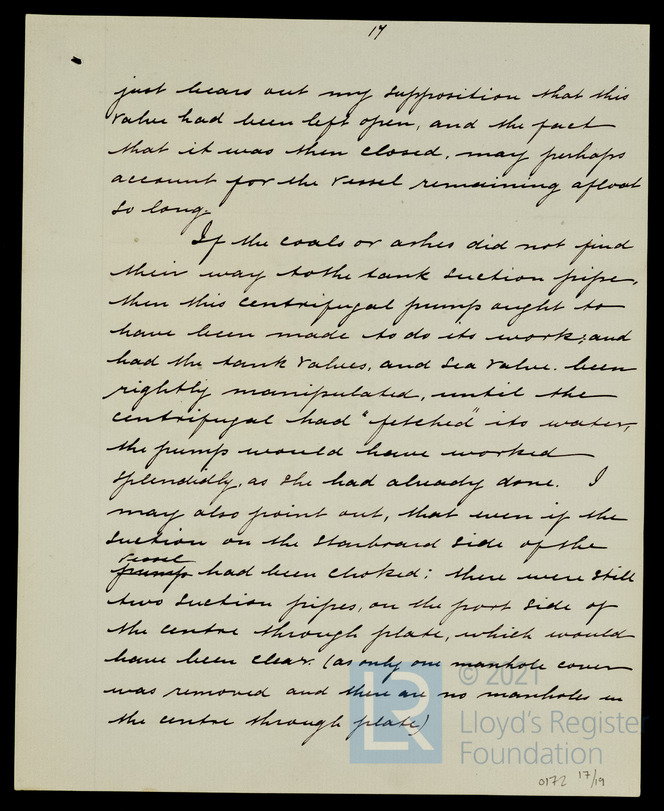 17
just bears out my supposition that this
valve had been left open, and the fact
that it was then closed, may perhaps
account for the vessel remaining afloat
so long.
If the coals or ashes did not find
their way to the tank suction pipe,
then this centrifugal pump ought to
have been made to do its work; and
had the tank valves, and sea valve. been
rightly manipulated, until the
centrifugal had "fetched" its water,
the pump would have worked
splendidly, as she had already done. I
may also point out, that even if the
suction on the starboard side of the
vessel
pump had been choked: there were still
two suction pipes, on the port side of
the centre through plate, which would
have been clear. (as only one manhole cover
was removed and there are no manholes in
the centre through plate)
© 2021
Lloyd's Register
Foundation
LR
0172 17/19